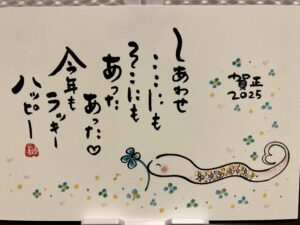 賀正
2025
しあわせ
ここにも
そこにも
あった
あった♡
今年も
ラッキー
ハッピー